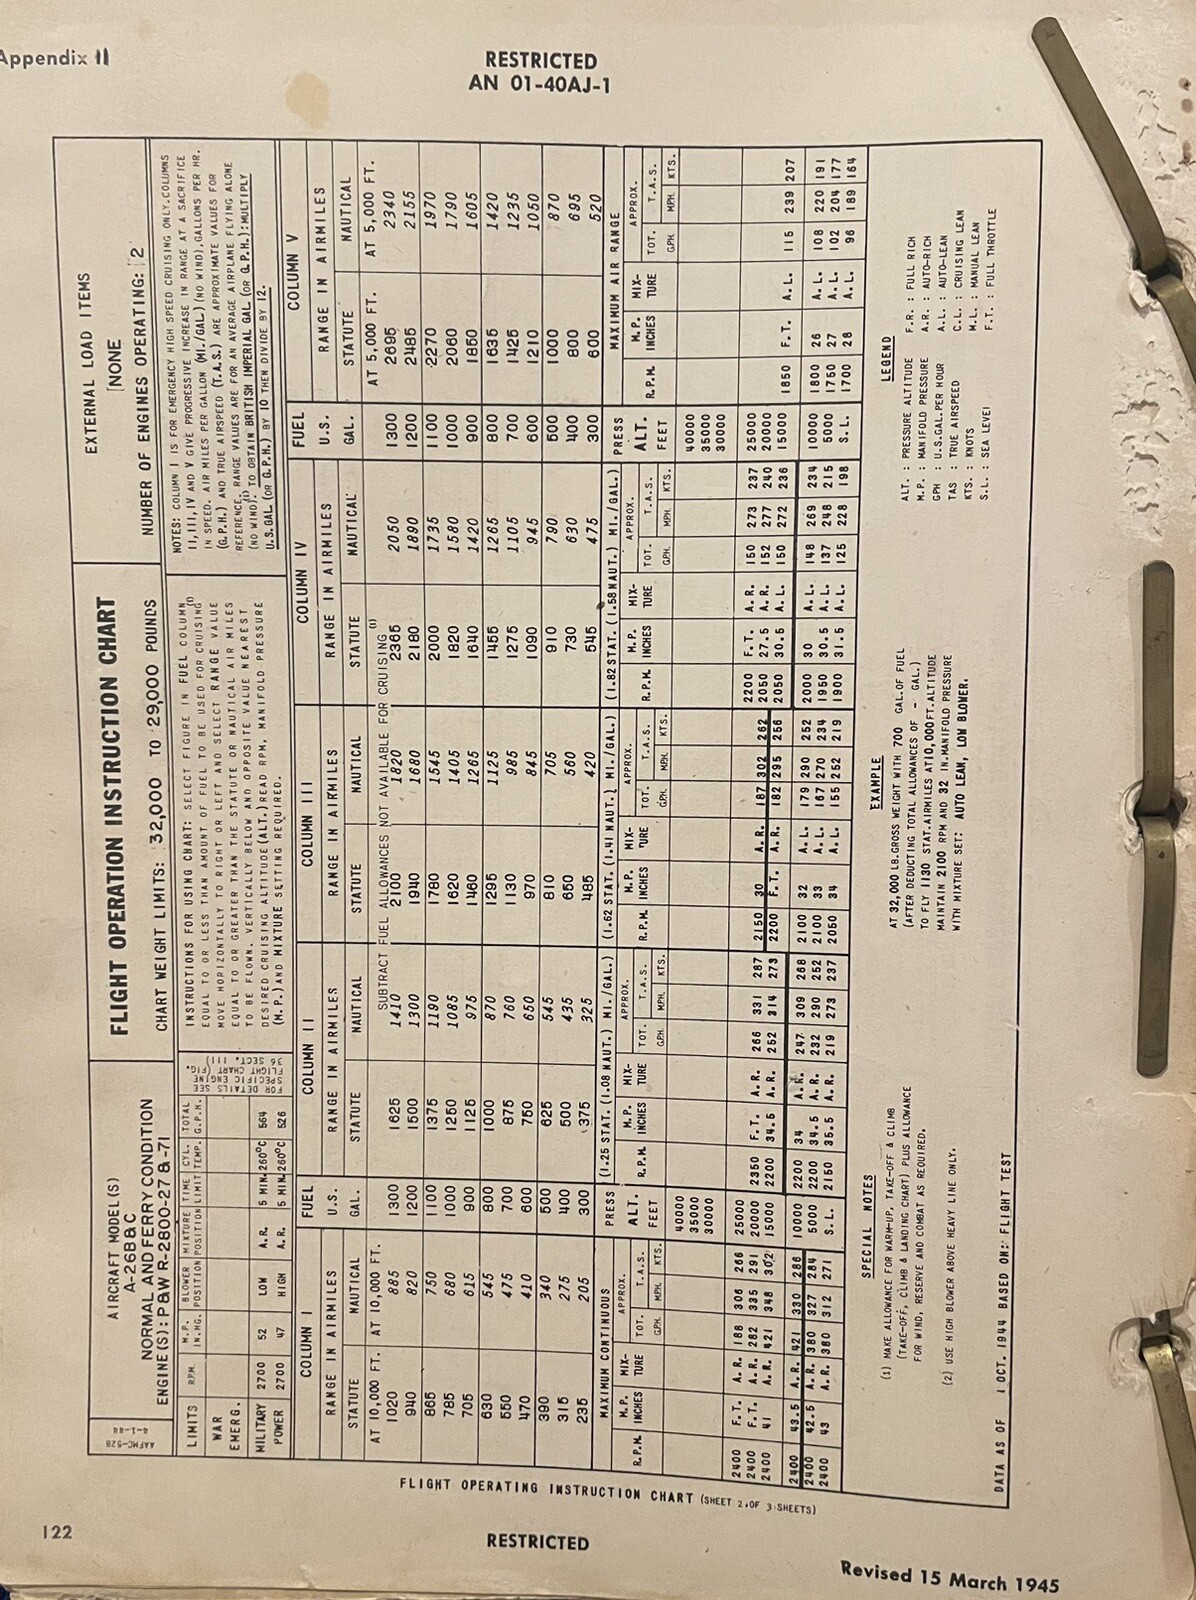 Appendix II
RESTRICTED
AN 01-40AJ-1
AAFMC-528
4-1-44
AIRCRAFT MODEL(S)
A-26B & C
NORMAL AND FERRY CONDITION
ENGINE(S): P&W R-2800-27 & -71
FLIGHT OPERATION INSTRUCTION CHART
CHART WEIGHT LIMITS: 32,000 TO 29,000 POUNDS
EXTERNAL LOAD ITEMS
NONE
NUMBER OF ENGINES OPERATING: 2
LIMITS R.P.M. M.P. IN.HG. BLOWER POSITION MIXTURE POSITION TIME LIMIT CYL. TEMP. TOTAL G.P.H.
WAR EMERG.
MILITARY POWER
2700 52 LOW A.R. 5 MIN. 260°C 564
2700 47 HIGH A.R. 5 MIN. 260°C 526
FOR DETAILS SEE
SPECIFIC ENGINE
FLIGHT CHART (FIG.
36 SECT. III)
INSTRUCTIONS FOR USING CHART: SELECT FIGURE IN FUEL COLUMN
EQUAL TO OR LESS THAN AMOUNT OF FUEL TO BE USED FOR CRUISING(1)
MOVE HORIZONTALLY TO RIGHT OR LEFT AND SELECT RANGE VALUE
EQUAL TO OR GREATER THAN THE STATUTE OR NAUTICAL AIR MILES
TO BE FLOWN. VERTICALLY BELOW AND OPPOSITE VALUE NEAREST
DESIRED CRUISING ALTITUDE (ALT.) READ RPM, MANIFOLD PRESSURE
(M.P.) AND MIXTURE SETTING REQUIRED.
NOTES: COLUMN I IS FOR EMERGENCY HIGH SPEED CRUISING ONLY. COLUMNS
II, III, IV AND V GIVE PROGRESSIVE INCREASE IN RANGE AT A SACRIFICE
IN SPEED. AIR MILES PER GALLON (MI./GAL.) (NO WIND), GALLONS PER HR.
(G.P.H.) AND TRUE AIRSPEED (T.A.S.) ARE APPROXIMATE VALUES FOR
REFERENCE. RANGE VALUES ARE FOR AN AVERAGE AIRPLANE FLYING ALONE
(NO WIND).(1) TO OBTAIN BRITISH IMPERIAL GAL. (OR G.P.H.): MULTIPLY
U.S. GAL. (OR G.P.H.) BY 10 THEN DIVIDE BY 12.
COLUMN I FUEL COLUMN II COLUMN III COLUMN IV FUEL COLUMN V
RANGE IN AIRMILES U.S. RANGE IN AIRMILES RANGE IN AIRMILES RANGE IN AIRMILES U.S. RANGE IN AIRMILES
STATUTE NAUTICAL GAL. STATUTE NAUTICAL STATUTE NAUTICAL STATUTE NAUTICAL GAL. STATUTE NAUTICAL
AT 10,000 FT. AT 10,000 FT. SUBTRACT FUEL ALLOWANCES NOT AVAILABLE FOR CRUISING (1) AT 5,000 FT. AT 5,000 FT.
1020 885 1300 1625 1410 2100 1820 2365 2050 1300 2695 2340
940 820 1200 1500 1300 1940 1680 2180 1890 1200 2485 2155
865 750 1100 1375 1190 1780 1545 2000 1735 1100 2270 1970
785 680 1000 1250 1085 1620 1405 1820 1580 1000 2060 1790
705 615 900 1125 975 1460 1265 1640 1420 900 1850 1605
630 545 800 1000 870 1295 1125 1455 1265 800 1635 1420
550 475 700 875 760 1130 985 1275 1105 700 1425 1235
470 410 600 750 650 970 845 1090 945 600 1210 1050
390 340 500 625 545 810 705 910 790 500 1000 870
315 275 400 500 435 650 560 730 630 400 800 695
235 205 300 375 325 485 420 545 475 300 600 520
MAXIMUM CONTINUOUS PRESS (1.25 STAT. (1.08 NAUT.) MI./GAL.) (1.62 STAT. (1.41 NAUT.) MI./GAL.) (1.82 STAT. (1.58 NAUT.) MI./GAL.) PRESS MAXIMUM AIR RANGE
R.P.M. M.P. INCHES MIX-TURE APPROX. TOT. G.P.H. T.A.S. MPH. KTS. ALT. FEET R.P.M. M.P. INCHES MIX-TURE APPROX. TOT. G.P.H. T.A.S. MPH. KTS. R.P.M. M.P. INCHES MIX-TURE APPROX. TOT. G.P.H. T.A.S. MPH. KTS. R.P.M. M.P. INCHES MIX-TURE APPROX. TOT. G.P.H. T.A.S. MPH. KTS. ALT. FEET R.P.M. M.P. INCHES MIX-TURE APPROX. TOT. G.P.H. T.A.S. MPH. KTS.
40000 40000
35000 35000
30000 30000
2400 F.T. A.R. 188 306 266 25000 2200 F.T. A.R. 150 273 237 25000
2400 F.T. A.R. 282 335 291 20000 2350 F.T. A.R. 266 331 287 2150 30 A.R. 187 302 262 2050 27.5 A.R. 152 277 240 20000
2400 41 A.R. 421 348 302 15000 2200 34.5 A.R. 252 314 273 2200 F.T. A.R. 182 295 256 2050 30.5 A.L. 150 272 236 15000 1850 F.T. A.L. 115 239 207
2400 43.5 A.R. 421 330 286 10000 2200 34 A.R. 247 309 268 2100 32 A.L. 179 290 252 2000 30 A.L. 148 269 234 10000 1800 26 A.L. 108 220 191
2400 42.5 A.R. 380 327 284 5000 2200 34.5 A.R. 232 290 252 2100 33 A.L. 167 270 234 1950 30.5 A.L. 137 248 215 5000 1750 27 A.L. 102 204 177
2400 43 A.R. 380 312 271 S.L. 2150 35.5 A.R. 219 273 237 2050 34 A.L. 155 252 219 1900 31.5 A.L. 125 228 198 S.L. 1700 28 A.L. 96 189 164
SPECIAL NOTES
(1) MAKE ALLOWANCE FOR WARM-UP, TAKE-OFF & CLIMB
(TAKE-OFF, CLIMB & LANDING CHART) PLUS ALLOWANCE
FOR WIND, RESERVE AND COMBAT AS REQUIRED.
(2) USE HIGH BLOWER ABOVE HEAVY LINE ONLY.
EXAMPLE
AT 32,000 LB. GROSS WEIGHT WITH 700 GAL. OF FUEL
(AFTER DEDUCTING TOTAL ALLOWANCES OF - GAL.)
TO FLY 1130 STAT. AIRMILES AT 10,000 FT. ALTITUDE
MAINTAIN 2100 RPM AND 32 IN. MANIFOLD PRESSURE
WITH MIXTURE SET: AUTO LEAN, LOW BLOWER.
LEGEND
ALT. : PRESSURE ALTITUDE F.R. : FULL RICH
M.P. : MANIFOLD PRESSURE A.R. : AUTO-RICH
GPH : U.S. GAL. PER HOUR A.L. : AUTO-LEAN
TAS : TRUE AIRSPEED C.L. : CRUISING LEAN
KTS. : KNOTS M.L. : MANUAL LEAN
S.L. : SEA LEVEL F.T. : FULL THROTTLE
DATA AS OF 1 OCT. 1944 BASED ON: FLIGHT TEST
FLIGHT OPERATING INSTRUCTION CHART (SHEET 2 OF 3 SHEETS)
122
RESTRICTED
Revised 15 March 1945